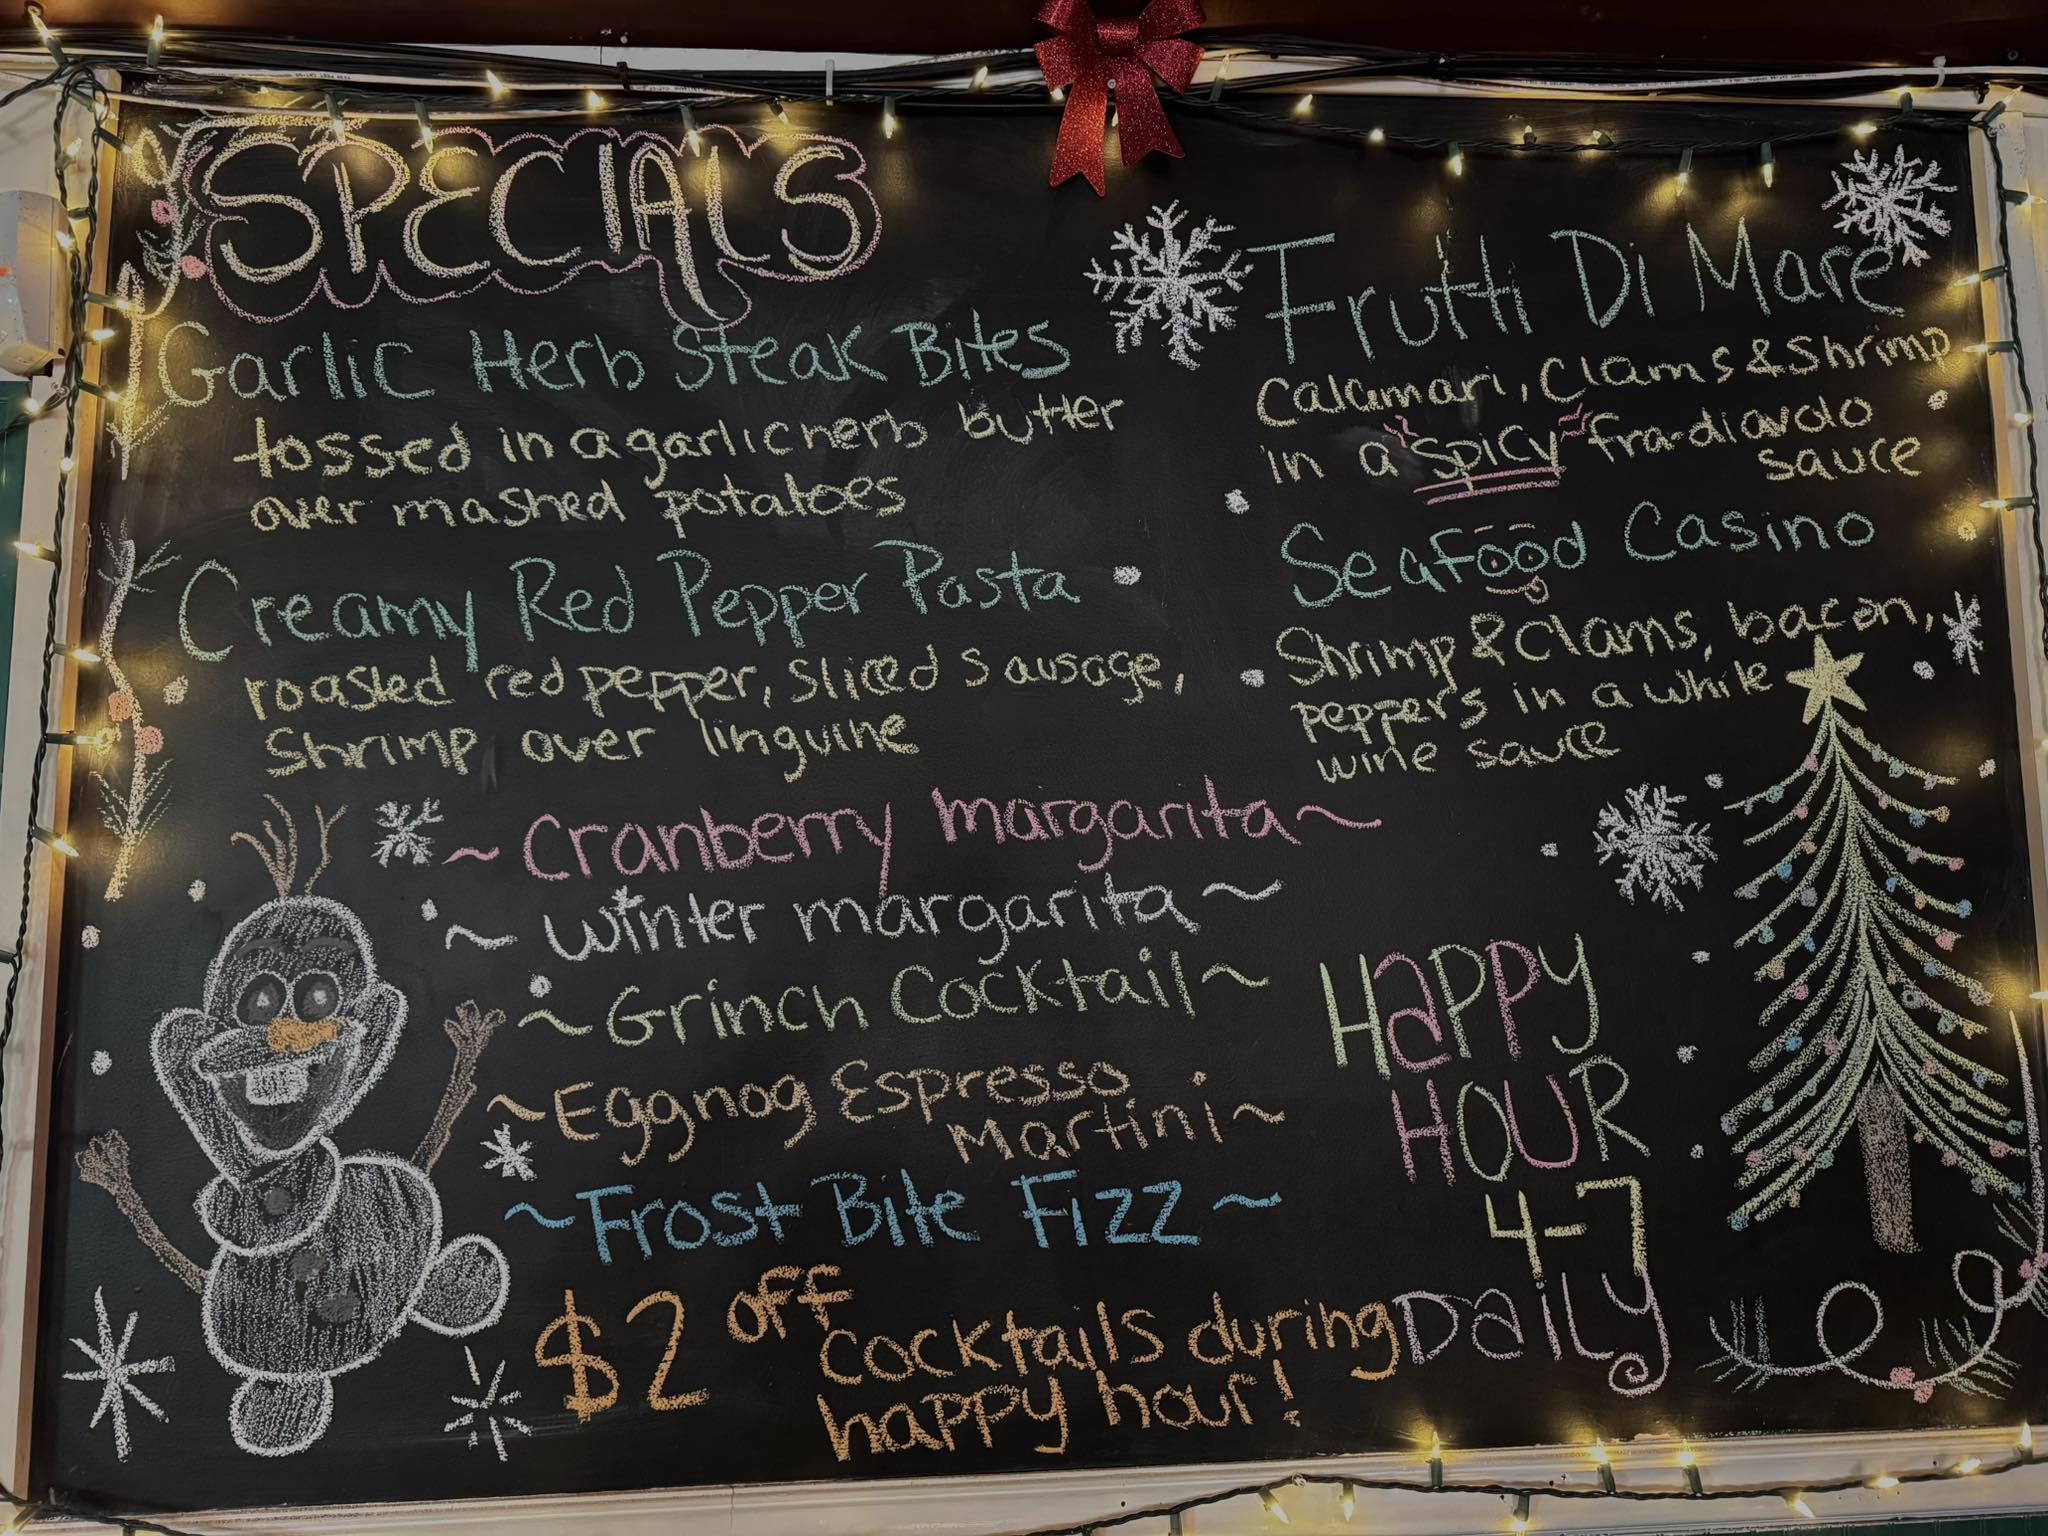 SPECIALS
Garlic Herb Steak Bites
tossed in a garlic herb butter
over mashed potatoes
Creamy Red Pepper Pasta
roasted red pepper, sliced sausage,
shrimp over linguine
Frutti Di Mare
Calamari, Clams & Shrimp
in a spicy fra-diavolo
sauce
Seafood Casino
Shrimp & Clams, bacon,
peppers in a white
wine sauce
~ Cranberry margarita ~
~ Winter margarita ~
~ Grinch Cocktail ~
~ Eggnog Espresso
Martini ~
~ Frost Bite Fizz ~
$2 off
Cocktails during
happy hour!
HaPPy
HOUR
4-7
Daily